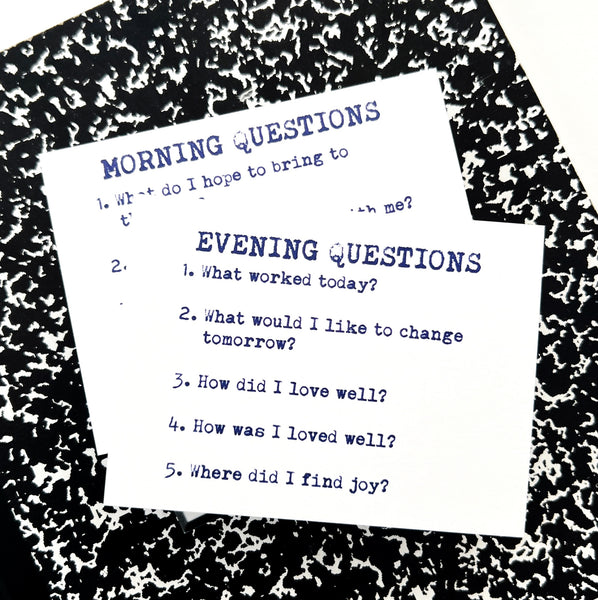 MORNING QUESTIONS
1. What do I hope to bring to
me?
2.
EVENING QUESTIONS
1. What worked today?
2. What would I like to change
tomorrow?
3. How did I love well?
4. How was I loved well?
5. Where did I find joy?